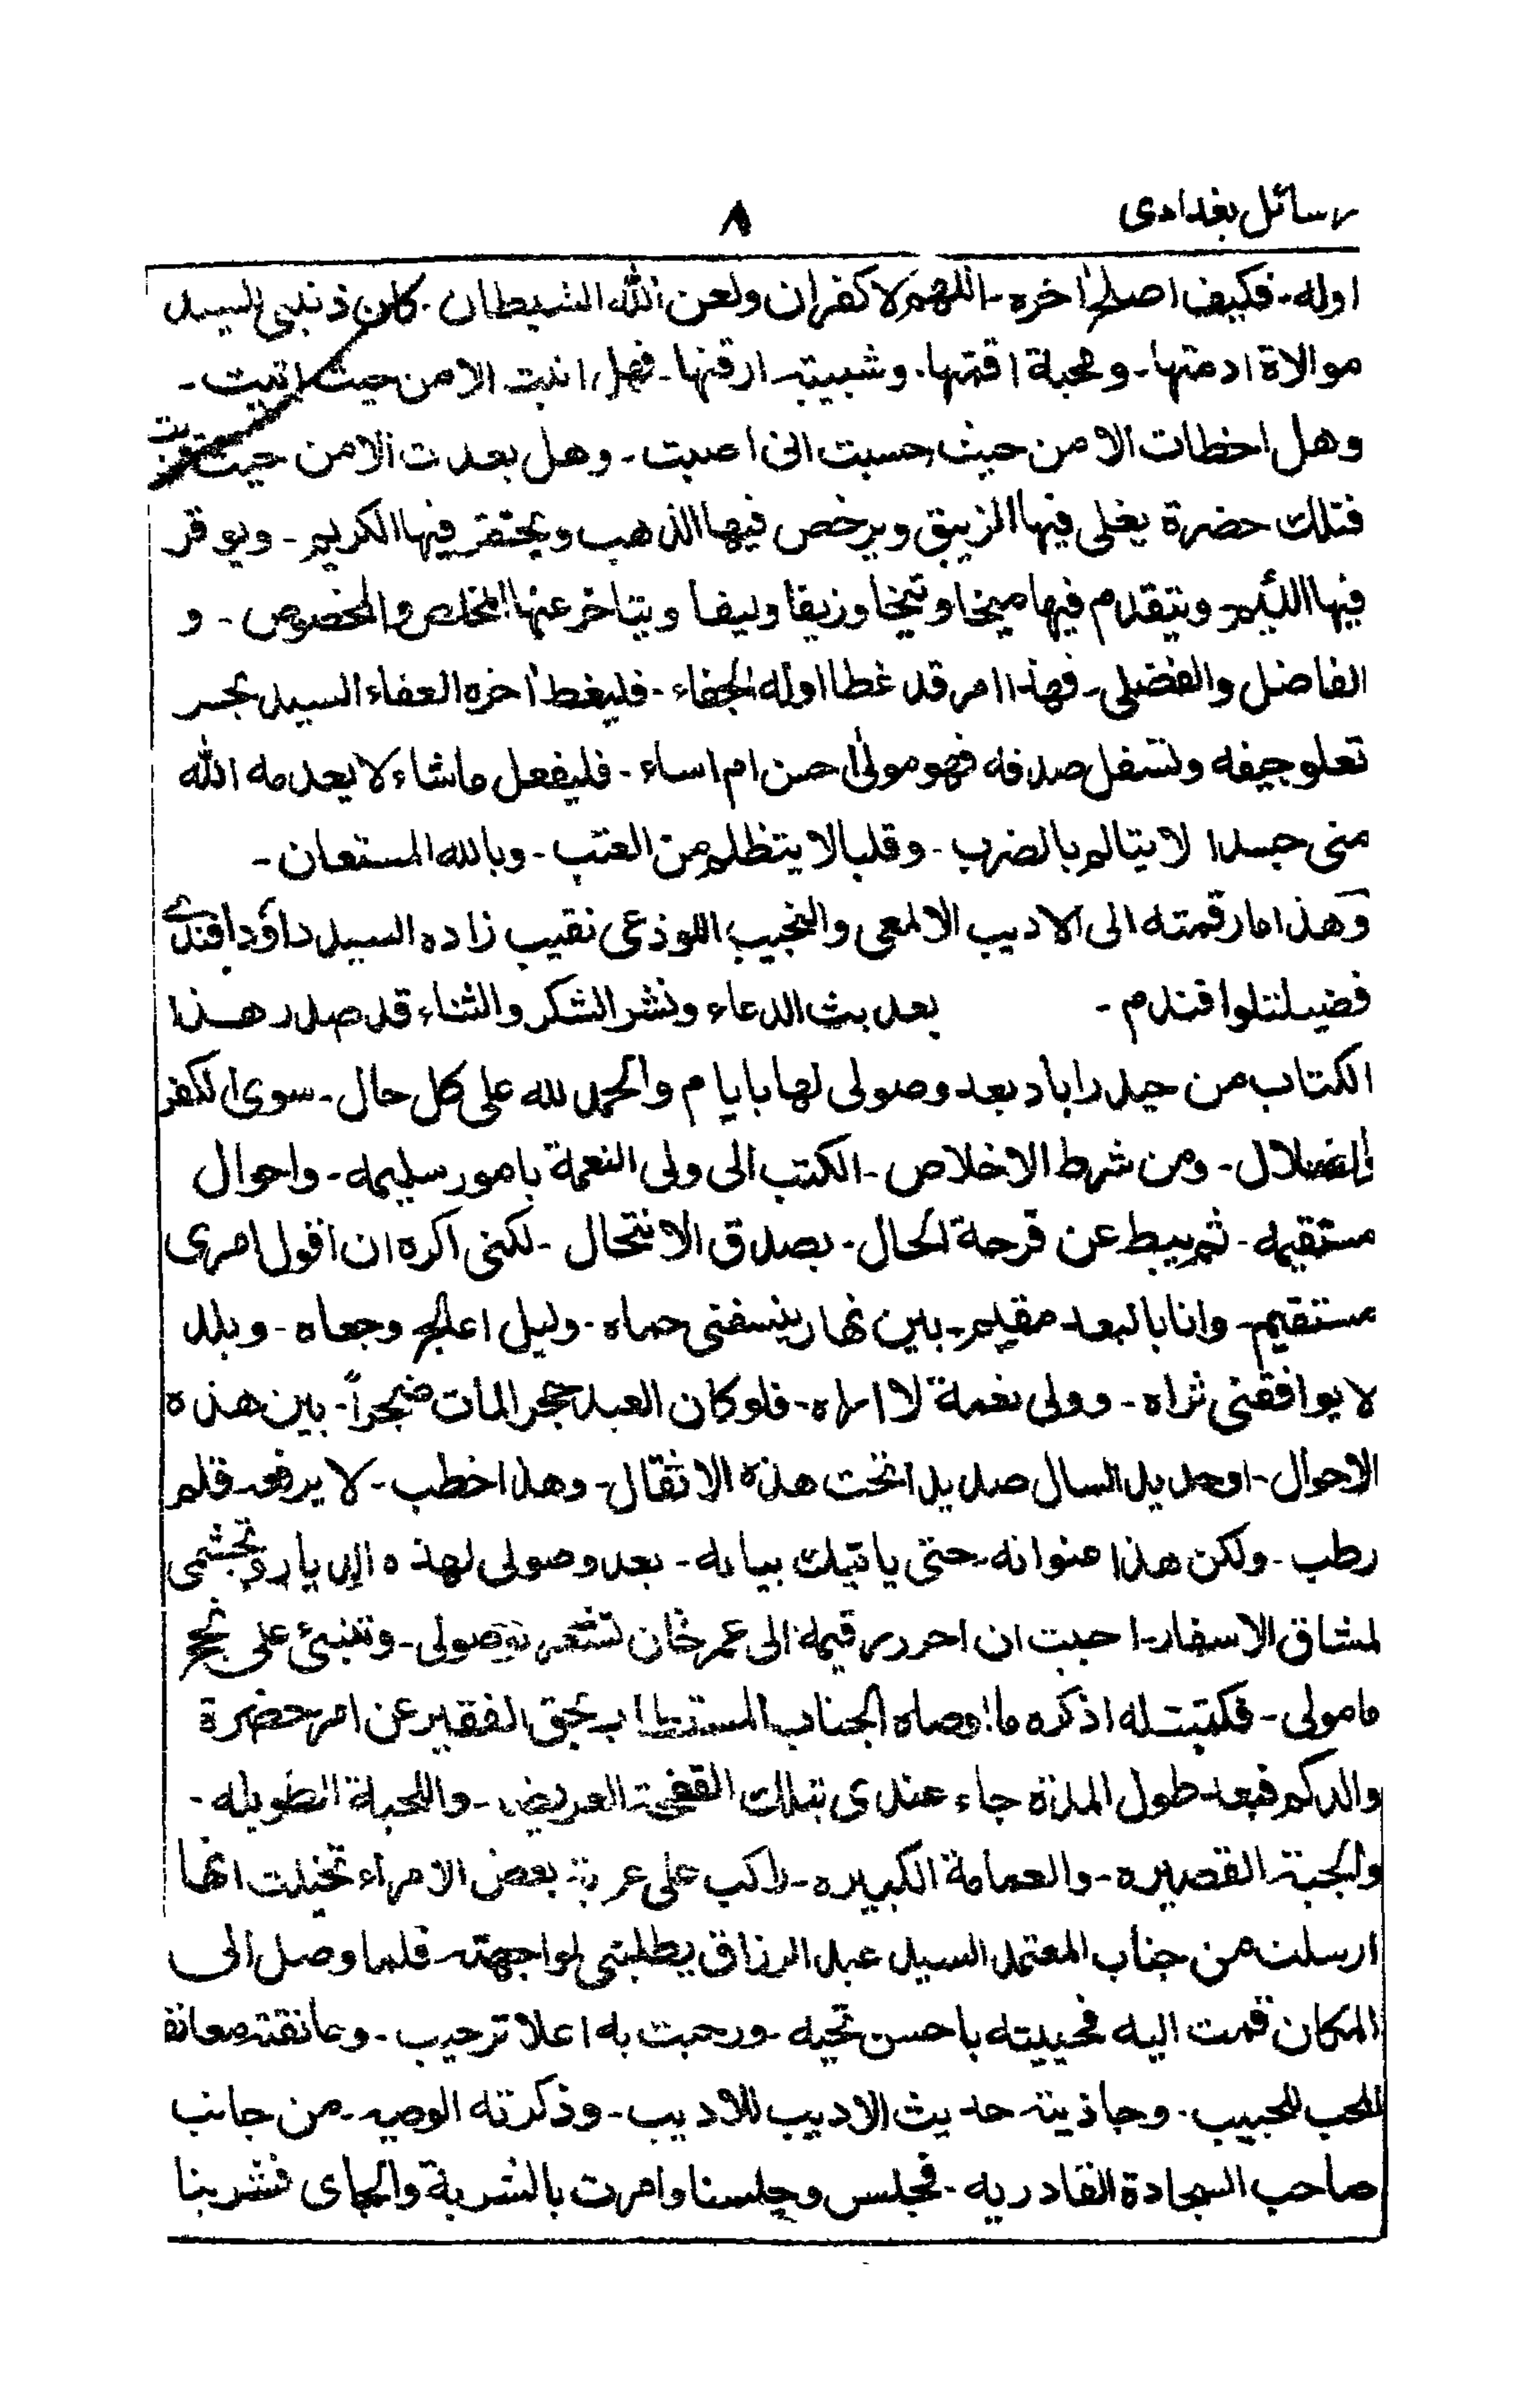 رسائل بغدادى
٨
اوله۔ فكيف اصل اخره۔ اللهم لا كفران ولعن الله الشيطان۔ كان ذنبى السيد
موالاة ادمتها۔ ومحبة اقمتها۔ وشبيبته ارقتها۔ فهل اتيت الامن حيث اتيت۔
وهل اخطات الامن حيث حسبت انى اصبت۔ وهل بعدت الامن حيث قربت
فتلك حضرة يغلى فيها الزيبق ويرخص فيها الذهب ويحتقر فيها الكريم۔ ويوقر
فيها اللئيم۔ ويتقدم فيها ميخا وتيخا وزيقا وليفا ويتاخر عنها المخلص والمخصوص۔ و
الفاضل والفضلى۔ فهذا امر قد غطا اوله الجفاء۔ فليغط اخره العفاء السيد بحر
تعلو جيفه وتسفل صدفه فهو مولى احسن ام اساء۔ فليفعل ما شاء لا يعدمه الله
منى جسدا لا يتالم بالضرب۔ وقلبا لا يتظلم من العتب۔ وبالله المستعان۔
وهذا ما رقمته الى الاديب الالمعى والنجيب اللوذعى نقيب زاده السيد داؤد افندے
فضيلتلوا فندم۔ بعد بث الدعاء ونشر الشكر والثناء قد صدر هذا
الكتاب من حيدراباد بعد وصولى لها بايام والحمد لله على كل حال۔ سوى الكفر
والضلال۔ ومن شرط الاخلاص۔ الكتب الى ولى النعمة بامور سليمه۔ واحوال
مستقيمه۔ ثم يبط عن قرحة الحال۔ بصدق الانتحال۔ لكنى اكره ان اقول امرى
مستقيم۔ وانا بالبعد مقيم۔ بين نهار ينسفنى حماه۔ وليل اعالج وجعاه۔ وبلد
لا يوافقنى ثراه۔ وولى نعمة لا اراه۔ فلو كان العبد حجر المات ضجراً۔ بين هذه
الاحوال۔ اوحديد السال صديدا تحت هذه الاثقال۔ وهذا خطب۔ لا يرفعه قلم
رطب۔ ولكن هذا عنوانه حتى ياتيك بيانه۔ بعد وصولى لهذه الديار وتجشمى
لمشاق الاسفار۔ احببت ان احرر رقيمة الى عمر خان تشعر بوصولى۔ وتنبئ على نجح
مامولى۔ فكتبت له اذكره ما اوصاه الجناب المستطاب بحق الفقير عن امر حضرة
والدكم فبعد طول المدة جاء عندى بتلك القفى العريض۔ واللحية الطويله۔
والجبة القصيره۔ والعمامة الكبيره۔ راكب على عربة بعض الامراء تخيلت انها
ارسلت من جناب المعتمد السيد عبد الرزاق يطلبنى لمواجهته فلما وصل الى
المكان قمت اليه فحييته باحسن تحيه۔ ورحبت به اعلا ترحيب۔ وعانقته معانقة
المحب للحبيب۔ وجاذبته حديث الاديب للاديب۔ وذكرته الوصيه۔ من جانب
صاحب السجادة القادريه۔ فجلس وجلسنا وامرت بالشربة والچاى فشربنا